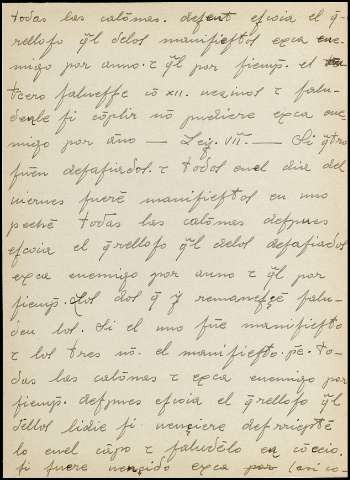 todas las calõnas. depent escoia el q̃-
rellofo q̃l delos manifieftos exca ene-
migo por anno. τ q̃l por fiemp̃. el
tc̃ero falueffe cõ xii. uezinos τ falu-
denle fi cõplir nõ pudiere exca ene
migo por año — Leẏ. vii. — Si q̃tro
fuẽn defafiados. τ todos enel dia del
uiernes fuerẽ manifieftos en uno
pechẽ todas las calõnas defpues
efcoia el q̃rellofo q̃l delos defafiados
exca enemigo por anno τ q̃l por
fiemp̃. Los dos q̃ ẏ remanefçẽ falu-
den los. Si el uno fũe manifiefto
τ los tres nõ. el manifiefto. pẽ. to-
das las calõnas τ exca enemigo por
fiemp̃. defpues efcoia el q̃rellofo q̃l
dellos lidie fi
lo enel cãpo τ faludẽlo en cõceio.
fi fuere vençido exca por